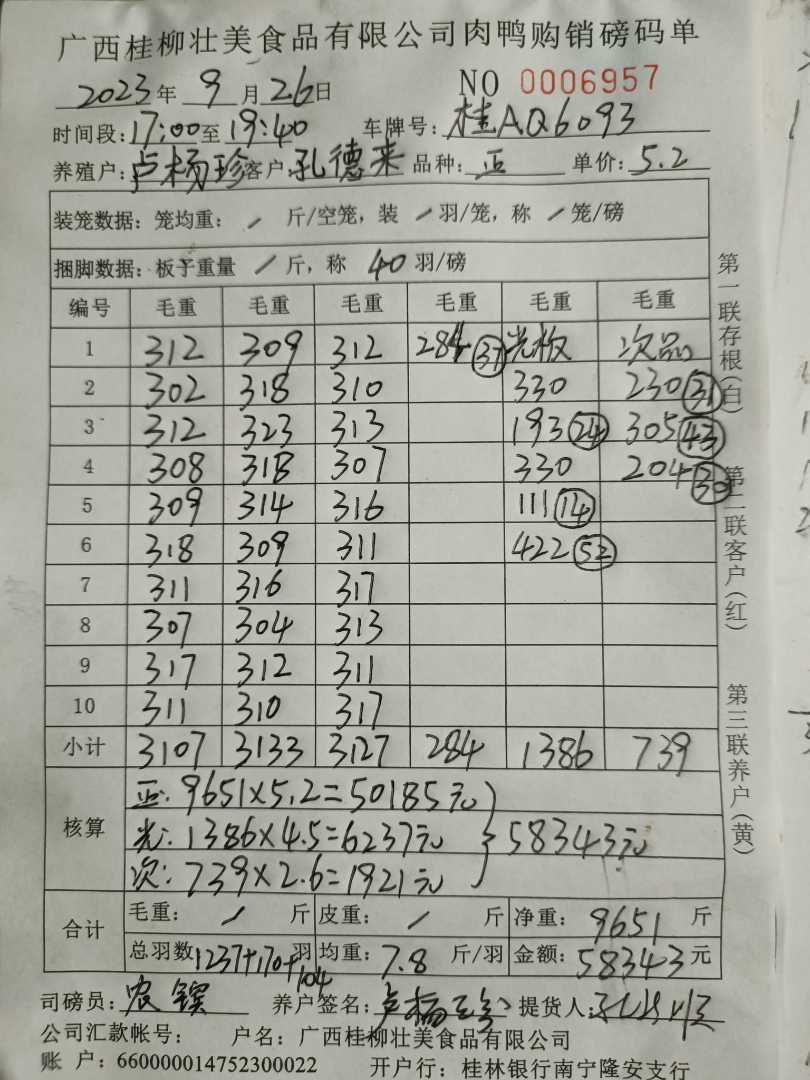 广西桂柳壮美食品有限公司肉鸭购销磅码单
2023年 9月26日 NO 0006957
时间段:17:00至19:40 车牌号:桂AQ6093
养殖户:卢杨珍 客户:孔德来 品种:正 单价:5.2
装笼数据: 笼均重: / 斤/空笼, 装 / 羽/笼, 称 / 笼/磅
捆脚数据: 板子重量 / 斤, 称 40 羽/磅
编号 毛重 毛重 毛重 毛重 毛重 毛重
1 312 309 312 284 37 光板 次品
2 302 318 310 330 230 31
3 312 323 313 193 24 305 43
4 308 318 307 330 204 30
5 309 314 316 111 14
6 318 309 311 422 52
7 311 316 317
8 307 304 313
9 317 312 311
10 311 310 317
小计 3107 3133 3127 284 1386 739
核算
正: 9651×5.2=50185元
光: 1386×4.5=6237元 58343元
次: 739×2.6=1921元
合计
毛重: / 斤 皮重: / 斤 净重: 9651 斤
总羽数1237+170+104羽 均重: 7.8 斤/羽 金额: 58343元
司磅员: 养户签名: 卢杨珍 提货人:
公司汇款帐号: 户名: 广西桂柳壮美食品有限公司
账 户: 660000014752300022 开户行: 桂林银行南宁隆安支行
第一联存根(白)
第二联客户(红)
第三联养户(黄)